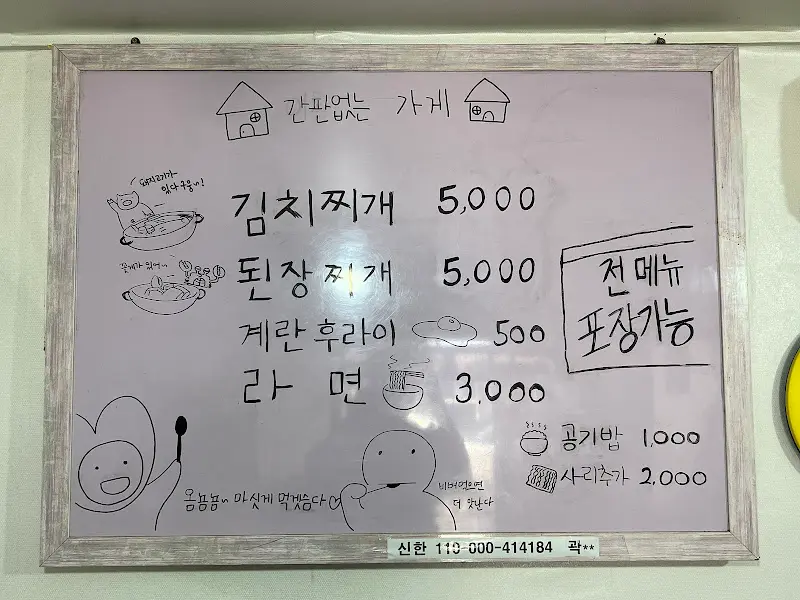 간판없는 가게
돼지고기가
있다구용~!
김치찌개 5,000
꽃게가 있어~
된장찌개 5,000
계란후라이 500
라면 3,000
전메뉴
포장가능
공기밥 1,000
사리추가 2,000
옴뇸뇸~ 마싯게 먹겠습다
비벼먹으면
더 맛난다
신한 110-000-414184 곽**